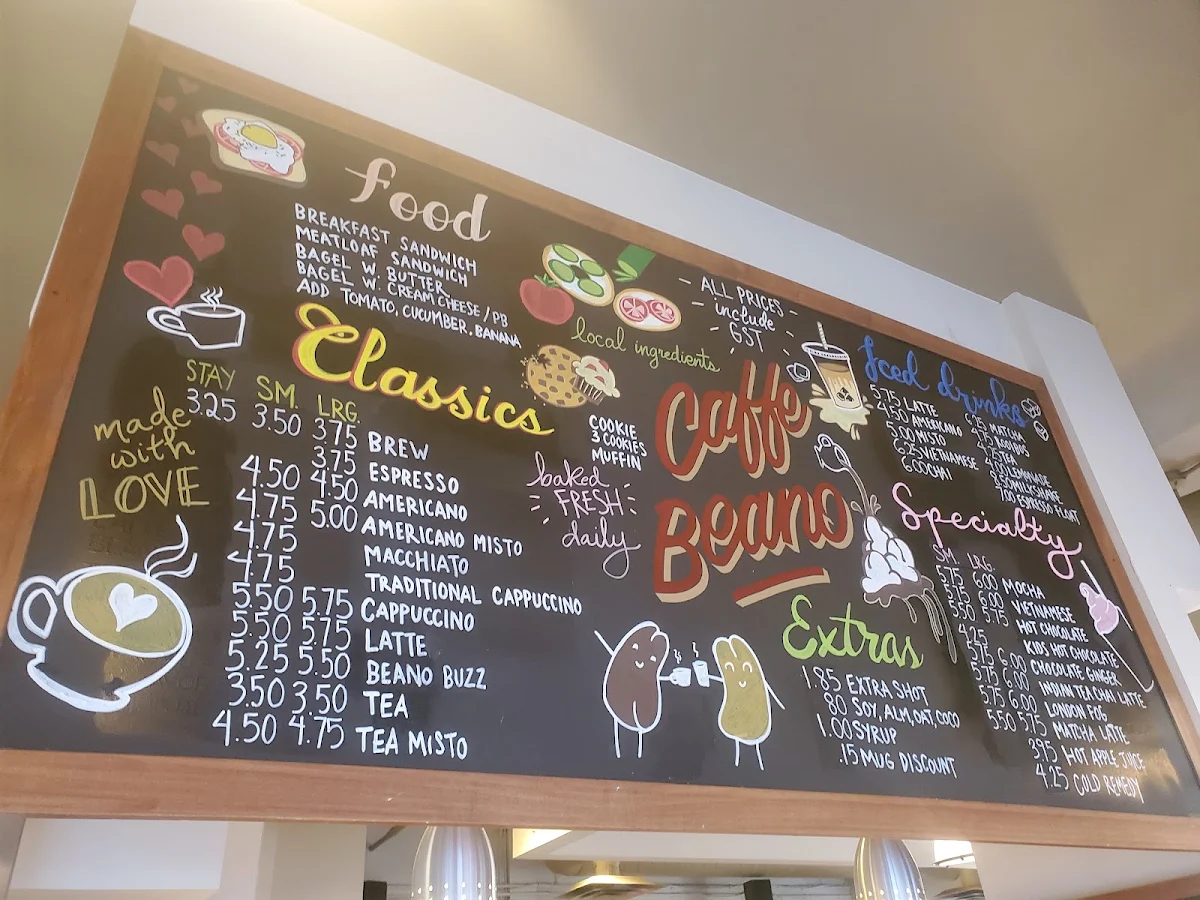 food
BREAKFAST SANDWICH
MEATLOAF SANDWICH
BAGEL W. BUTTER
BAGEL W. CREAM CHEESE / PB
ADD TOMATO, CUCUMBER, BANANA
local ingredients
- ALL PRICES -
- include -
GST
Classics
STAY SM. LRG.
3.25 3.50 3.75 BREW
3.75 ESPRESSO
4.50 4.50 AMERICANO
4.75 5.00 AMERICANO MISTO
4.75 MACCHIATO
4.75 TRADITIONAL CAPPUCCINO
5.50 5.75 CAPPUCCINO
5.50 5.75 LATTE
5.25 5.50 BEANO BUZZ
3.50 3.50 TEA
4.50 4.75 TEA MISTO
made
with
LOVE
COOKIE
3 COOKIES
MUFFIN
baked
FRESH
daily
Caffe
Beano
Extras
1.85 EXTRA SHOT
.80 SOY, ALM, OAT, COCO
1.00 SYRUP
.15 MUG DISCOUNT
Iced drinks
5.75 LATTE
4.50 AMERICANO
5.00 MISTO
6.25 VIETNAMESE
6.00 CHAI
6.25 MATCHA
TEA
LEMONADE
MILKSHAKE
7.00 ESPRESSO FLOAT
Specialty
SM. LRG.
5.75 6.00 MOCHA
5.75 6.00 VIETNAMESE
5.50 5.75 HOT CHOCOLATE
4.25 KIDS HOT CHOCOLATE
5.75 6.00 CHOCOLATE GINGER
5.75 6.00 INDIAN TEA CHAI LATTE
5.75 6.00 LONDON FOG
5.50 5.75 MATCHA LATTE
3.95 HOT APPLE JUICE
4.25 COLD REMEDY